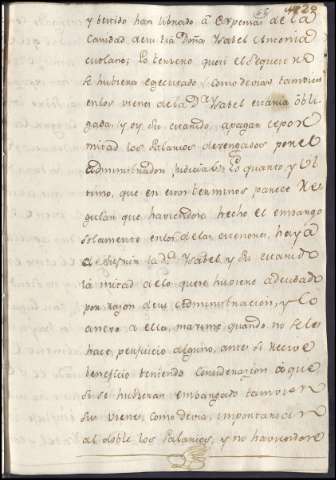 y bevido han librado a expensas de la
Caridad de mi tia Doña Ysabel Antonia
Lo tercero que si el sequestro
se hubiera egecutado, como devia tambien
en los vienes de la Dª Ysabel estaria obli-
gada, y oy su a pagar
mitad los salarios devengados por el
administrador judicial; Lo quarto y Ul-
timo, que en esos terminos parece Re-
gular que haviendose hecho el embargo
solamente en los de las haya
de la Dª Ysabel y su
la mitad de lo que se hubiere adeudado
por razon de su administracion, y lo
anexo a ella, maxime quando no se les
hace perjuicio alguno, antes si recive
beneficio teniendo consideracion a que
si se hubieran embargado tambien
sus vienes, como devia, importarian
al doble los salarios, y no haviendose